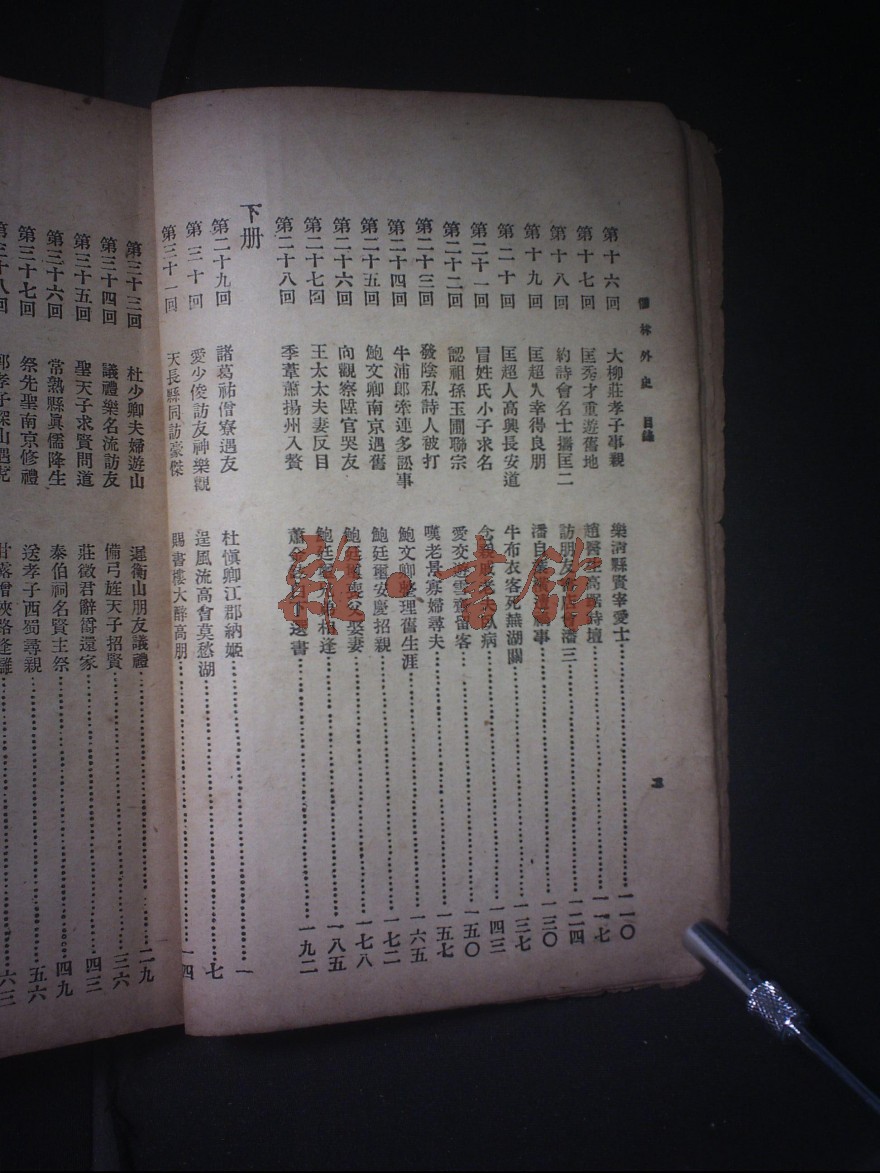 儒林外史 目錄
第十六回 大柳莊孝子事親 樂清縣賢宰愛士 一一〇
第十七回 匡秀才重遊舊地 趙醫生高踞詩壇 一一七
第十八回 約詩會名士攜匡二 訪朋友書店會潘三 一二四
第十九回 匡超人幸得良朋 潘自業橫遭禍事 一三〇
第二十回 匡超人高興長安道 牛布衣客死蕪湖關 一三七
第二十一回 冒姓氏小子求名 念親戚老夫臥病 一四三
第二十二回 認祖孫玉圃聯宗 愛交遊雪齋留客 一五〇
第二十三回 發陰私詩人被打 嘆老景寡婦尋夫 一五七
第二十四回 牛浦郎牽連多訟事 鮑文卿整理舊生涯 一六五
第二十五回 鮑文卿南京遇舊 鮑廷璽安慶招親 一七二
第二十六回 向觀察陞官哭友 鮑廷璽喪父娶妻 一七八
第二十七回 王太太夫妻反目 鮑廷璽兄弟相逢 一八五
第二十八回 季葦蕭揚州入贅 蕭金鉉白下選書 一九二
下册
第二十九回 諸葛祐僧寮遇友 杜慎卿江郡納姬 一
第三十回 愛少俊訪友神樂觀 逞風流高會莫愁湖 七
第三十一回 天長縣同訪豪傑 賜書樓大醉高朋 一四
三
第三十三回 杜少卿夫婦遊山 遲衡山朋友議禮 二九
第三十四回 議禮樂名流訪友 備弓旌天子招賢 三六
第三十五回 聖天子求賢問道 莊徵君辭爵還家 四三
第三十六回 常熟縣眞儒降生 泰伯祠名賢主祭 四九
第三十七回 祭先聖南京修禮 送孝子西蜀尋親 五六
第三十八回 郭孝子深山遇虎 甘露僧狹路逢讎 六三